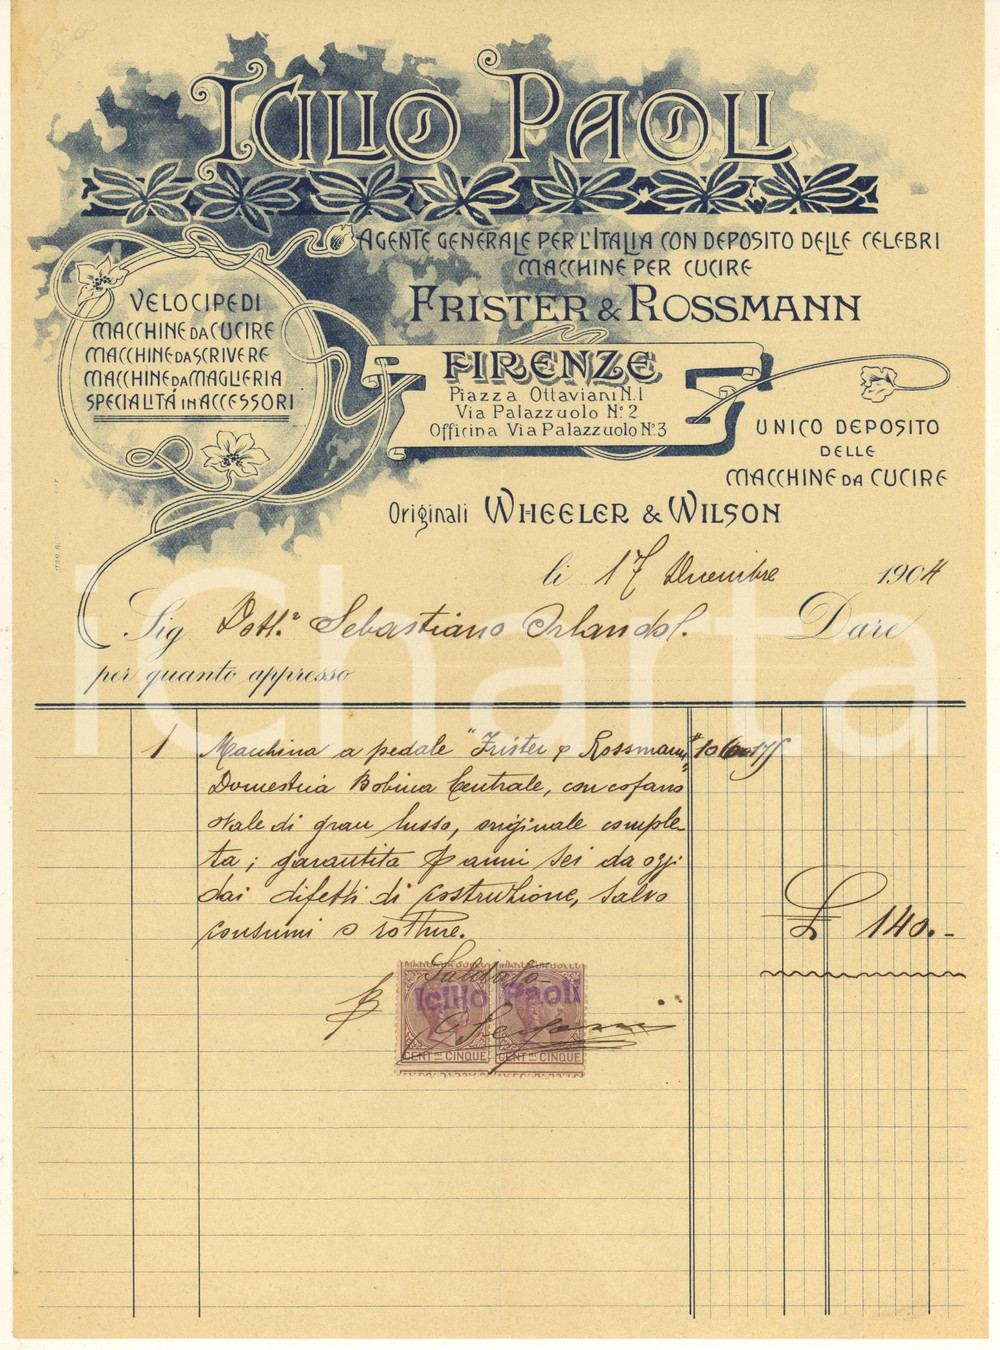 ICILIO PAOLI
AGENTE GENERALE PER L'ITALIA CON DEPOSITO DELLE CELEBRI
MACCHINE PER CUCIRE
FRISTER & ROSSMANN
VELOCIPEDI
MACCHINE DA CUCIRE
MACCHINE DA SCRIVERE
MACCHINE DA MAGLIERIA
SPECIALITÁ IN ACCESSORI
FIRENZE
Piazza Ottaviani N. 1
Via Palazzuolo N.° 2
Officina Via Palazzuolo N.° 3
UNICO DEPOSITO
DELLE
MACCHINE DA CUCIRE
Originali WHEELER & WILSON
li 17 Dicembre 1904
Sig. Dott. Sebastiano Orlandol. Dare
per quanto appresso
iCharta
1 Macchina a pedale "Frister & Rossmann"
Domestica Bobina Centrale, con cofano
ovale di gran lusso, originale comple-
ta; garantita anni sei da oggi
dai difetti di costruzione, salvo
consumi o rotture.
£ 140.-
Saldato
Icilio Paoli
CENT.MI CINQUE CENT.MI CINQUE